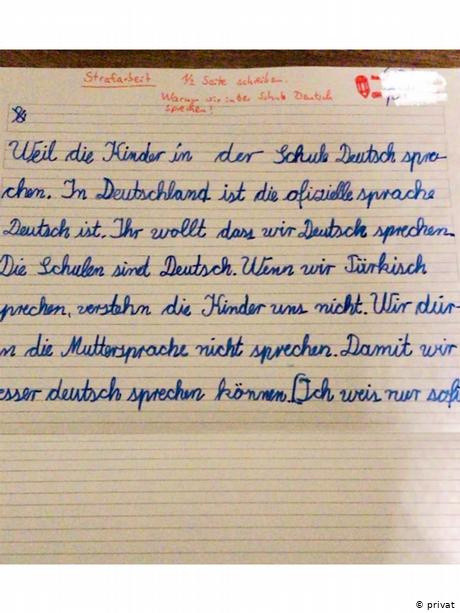 Strafarbeit 1/2 Seite schreiben.
Warum wir in der Schule Deutsch
sprechen!
Weil die Kinder in der Schule Deutsch spre-
chen. In Deutschland ist die ofizielle sprache
Deutsch ist. Ihr wollt dass wir Deutsch sprechen.
Die Schulen sind Deutsch. Wenn wir Türkisch
prechen, verstehn die Kinder uns nicht. Wir dür-
n die Muttersprache nicht sprechen. Damit wir
esser deutsch sprechen können. [Ich weis nur
© privat